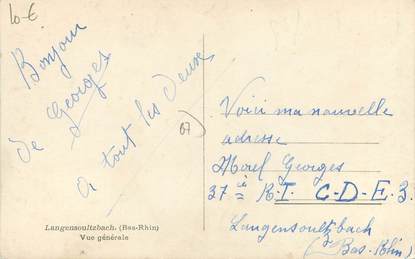 10-€
Bonjour
de Georges
a tout les deux
67)
Langensoultzbach. (Bas-Rhin)
Vue générale
Voici ma nouvelle
adresse
Morel Georges
37è R.I. C-D-E.3.
Langensoultzbach
(Bas-Rhin)